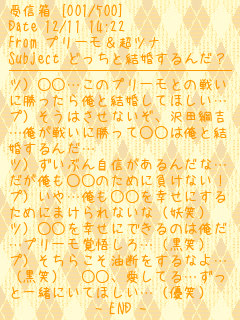 受信箱 [001/500]
Date 12/11 14:22
From プリーモ＆超ツナ
Subject どっちと結婚するんだ？
ツ）○○…このプリーモとの戦い
に勝ったら俺と結婚してほしい…
プ）そうはさせないぞ、沢田綱吉
…俺が戦いに勝って○○は俺と結
婚するんだ…
ツ）ずいぶん自信があるんだな…
だが俺も○○のために負けない！
プ）いや…俺も○○を幸せにする
ためにまけられないな（妖笑）
ツ）○○を幸せにできるのは俺だ
…プリーモ覚悟しろ…（黒笑）
プ）そちらこそ油断をするなよ…
（黒笑）　○○、愛してる…ずっ
と一緒にいてほしい…（優笑）
～ END ～